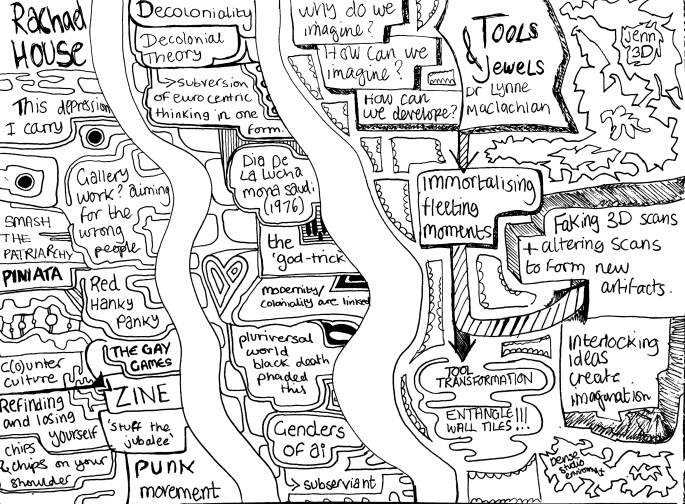 Rachael
HOUSE
This depression
I carry
Gallery
work? aiming
for the
wrong
people
SMASH
THE
PATRIARCHY
PINIATA
Red
Hanky
Panky
THE GAY
GAMES
C(O)unter
culture
ZINE
Refinding
and losing
yourself
'stuff the
jubalee'
chips
& chips on your
shoulder
PUNK
movement
Decoloniality
Decolonial
Theory
>subversion
of eurocentric
thinking in one
form.
Dia De
La Lucha
mona saudi
(1976)
the
'god-trick
modernity/
coloniality are linked
pluriversal
world
black death
phaded
this
Genders
of ai
> subserviant
why do we
imagine?
How can we
imagine?
How can
we develope?
TOOLS
&
Jewels
Dr Lynne
Maclachlan
Jenn
3D
Immortalising
fleeting
moments
Faking 3D scans
+ altering scans
to form new
artifacts.
TOOL
TRANSFORMATION
ENTANGLE
WALL TILES!!!
Interlocking
ideas
create
imagination
Dense
studio
enviroment